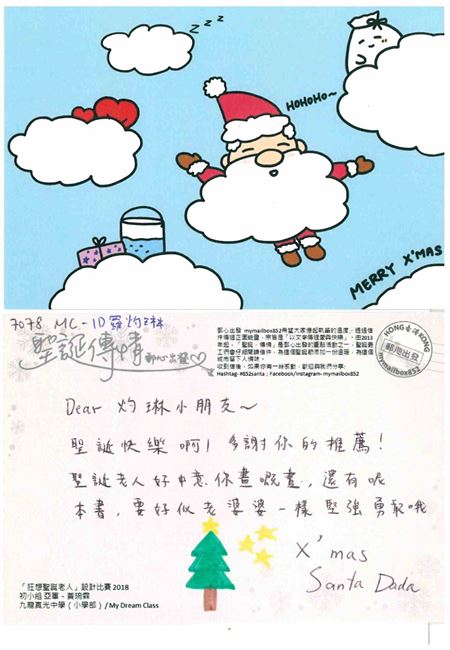 zzz
HOHOHO~
MERRY X'MAS
7078 MC-1D 羅灼琳
聖誕傳情 郵心出發
郵心出發 mymailbox852希望大家撿起執筆的溫度，透過信
件傳遞正面能量，宗旨是「以文字傳遞愛與快樂」。由2013
年起，「聖誕．傳情」是郵心出發的重點活動之一，聖誕義
工們會仔細閱讀信件，為這個聖誕節添加一份溫暖，為這個
城市留下人情味。
收到信後，如果你有一絲感動，歡迎與我們分享：
Hashtag-#852santa ; Facebook/Instagram-mymailbox852
HONG 香港 KONG
郵心出發
mymailbox852
Dear 灼琳小朋友~
聖誕快樂啊！多謝你的推薦！
聖誕老人好中意你畫嘅畫，還有呢
本書，要好似老婆婆一樣堅強勇敢哦
X'mas
Santa Dada
「狂想聖誕老人」設計比賽 2018
初小組 亞軍 – 黃琉霖
九龍真光中學（小學部）/ My Dream Class